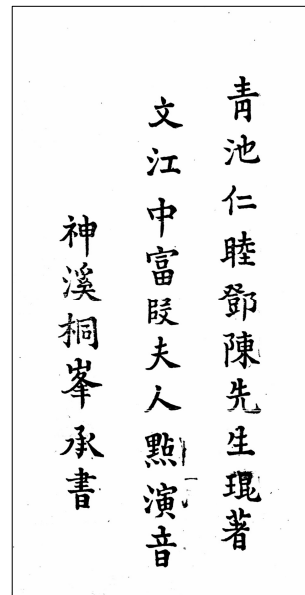 青池仁睦鄧陳先生琨著
文江中富段夫人點演音
神溪桐峯承書